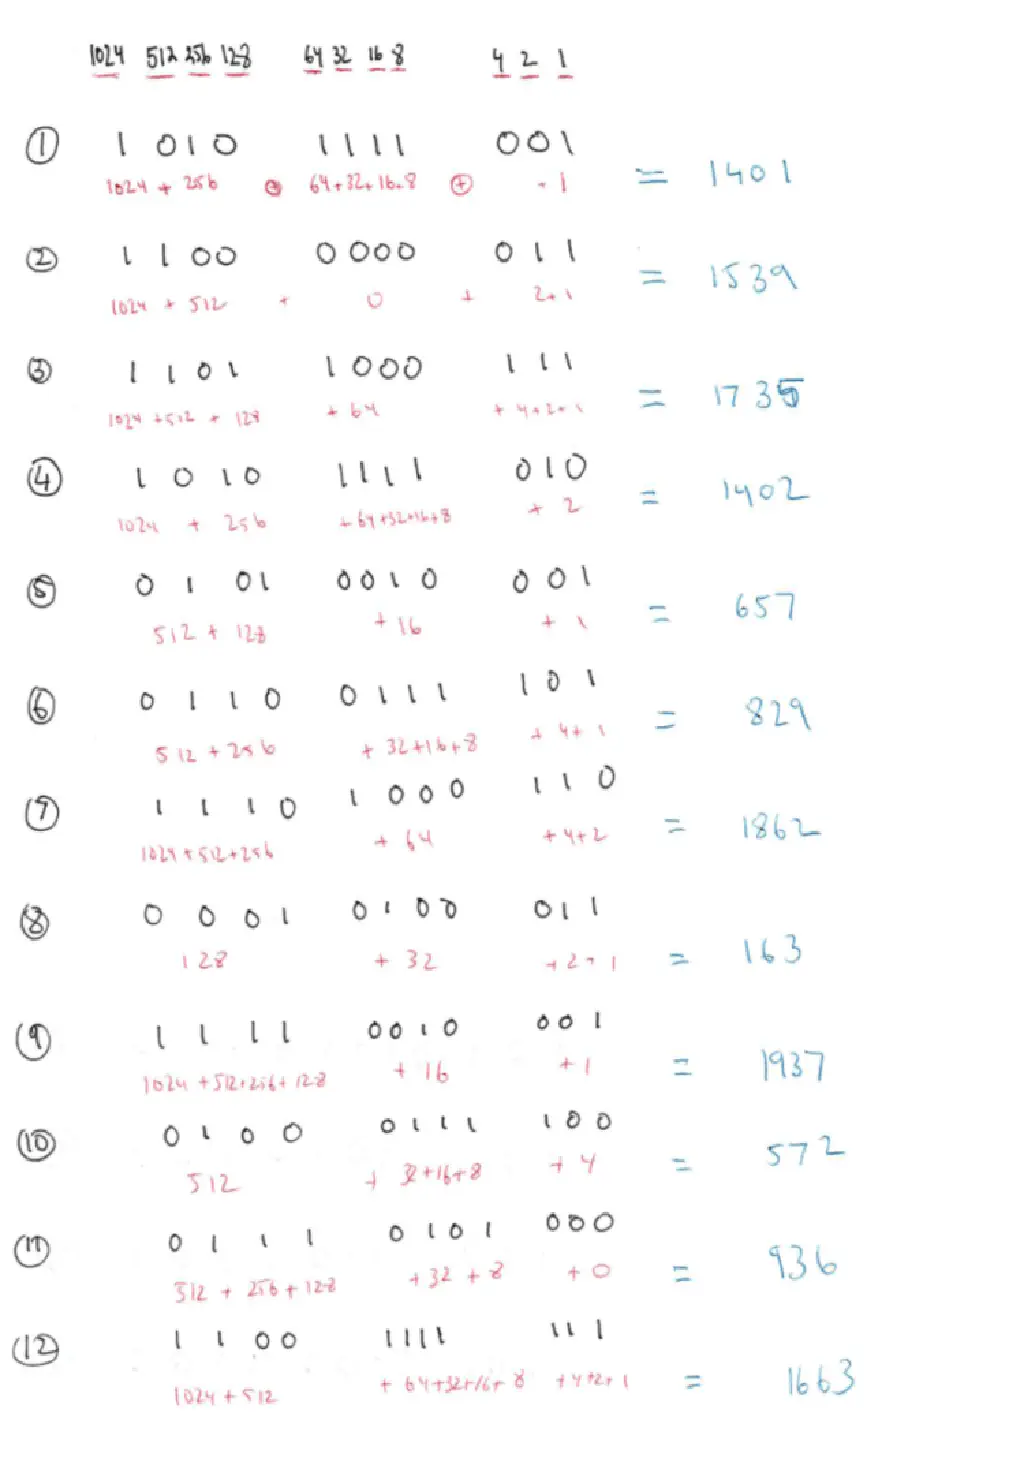 1024 512 256 128 64 32 16 8 4 2 1
① 1 0 1 0 1 1 1 1 0 0 1
1024 + 256 + 64+32+16+8 + 1 = 1401
② 1 1 0 0 0 0 0 0 0 1 1
1024 + 512 + 0 + 2+1 = 1539
③ 1 1 0 1 1 0 0 0 1 1 1
1024 +512 + 128 + 64 + 4+2+1 = 1735
④ 1 0 1 0 1 1 1 1 0 1 0
1024 + 256 + 64+32+16+8 + 2 = 1402
⑤ 0 1 0 1 0 0 1 0 0 0 1
512 + 128 + 16 + 1 = 657
⑥ 0 1 1 0 0 1 1 1 1 0 1
512 + 256 + 32+16+8 + 4+ 1 = 829
⑦ 1 1 1 0 1 0 0 0 1 1 0
1024+512+256 + 64 +4+2 = 1862
⑧ 0 0 0 1 0 1 0 0 0 1 1
128 + 32 +2+1 = 163
⑨ 1 1 1 1 0 0 1 0 0 0 1
1024 +512+256+128 + 16 +1 = 1937
⑩ 0 1 0 0 0 1 1 1 1 0 0
512 + 32+16+8 + 4 = 572
⑪ 0 1 1 1 0 1 0 1 0 0 0
512 + 256 + 128 +32 + 8 + 0 = 936
⑫ 1 1 0 0 1 1 1 1 1 1 1
1024 + 512 + 64+32+16+ 8 +4+2+1 = 1663